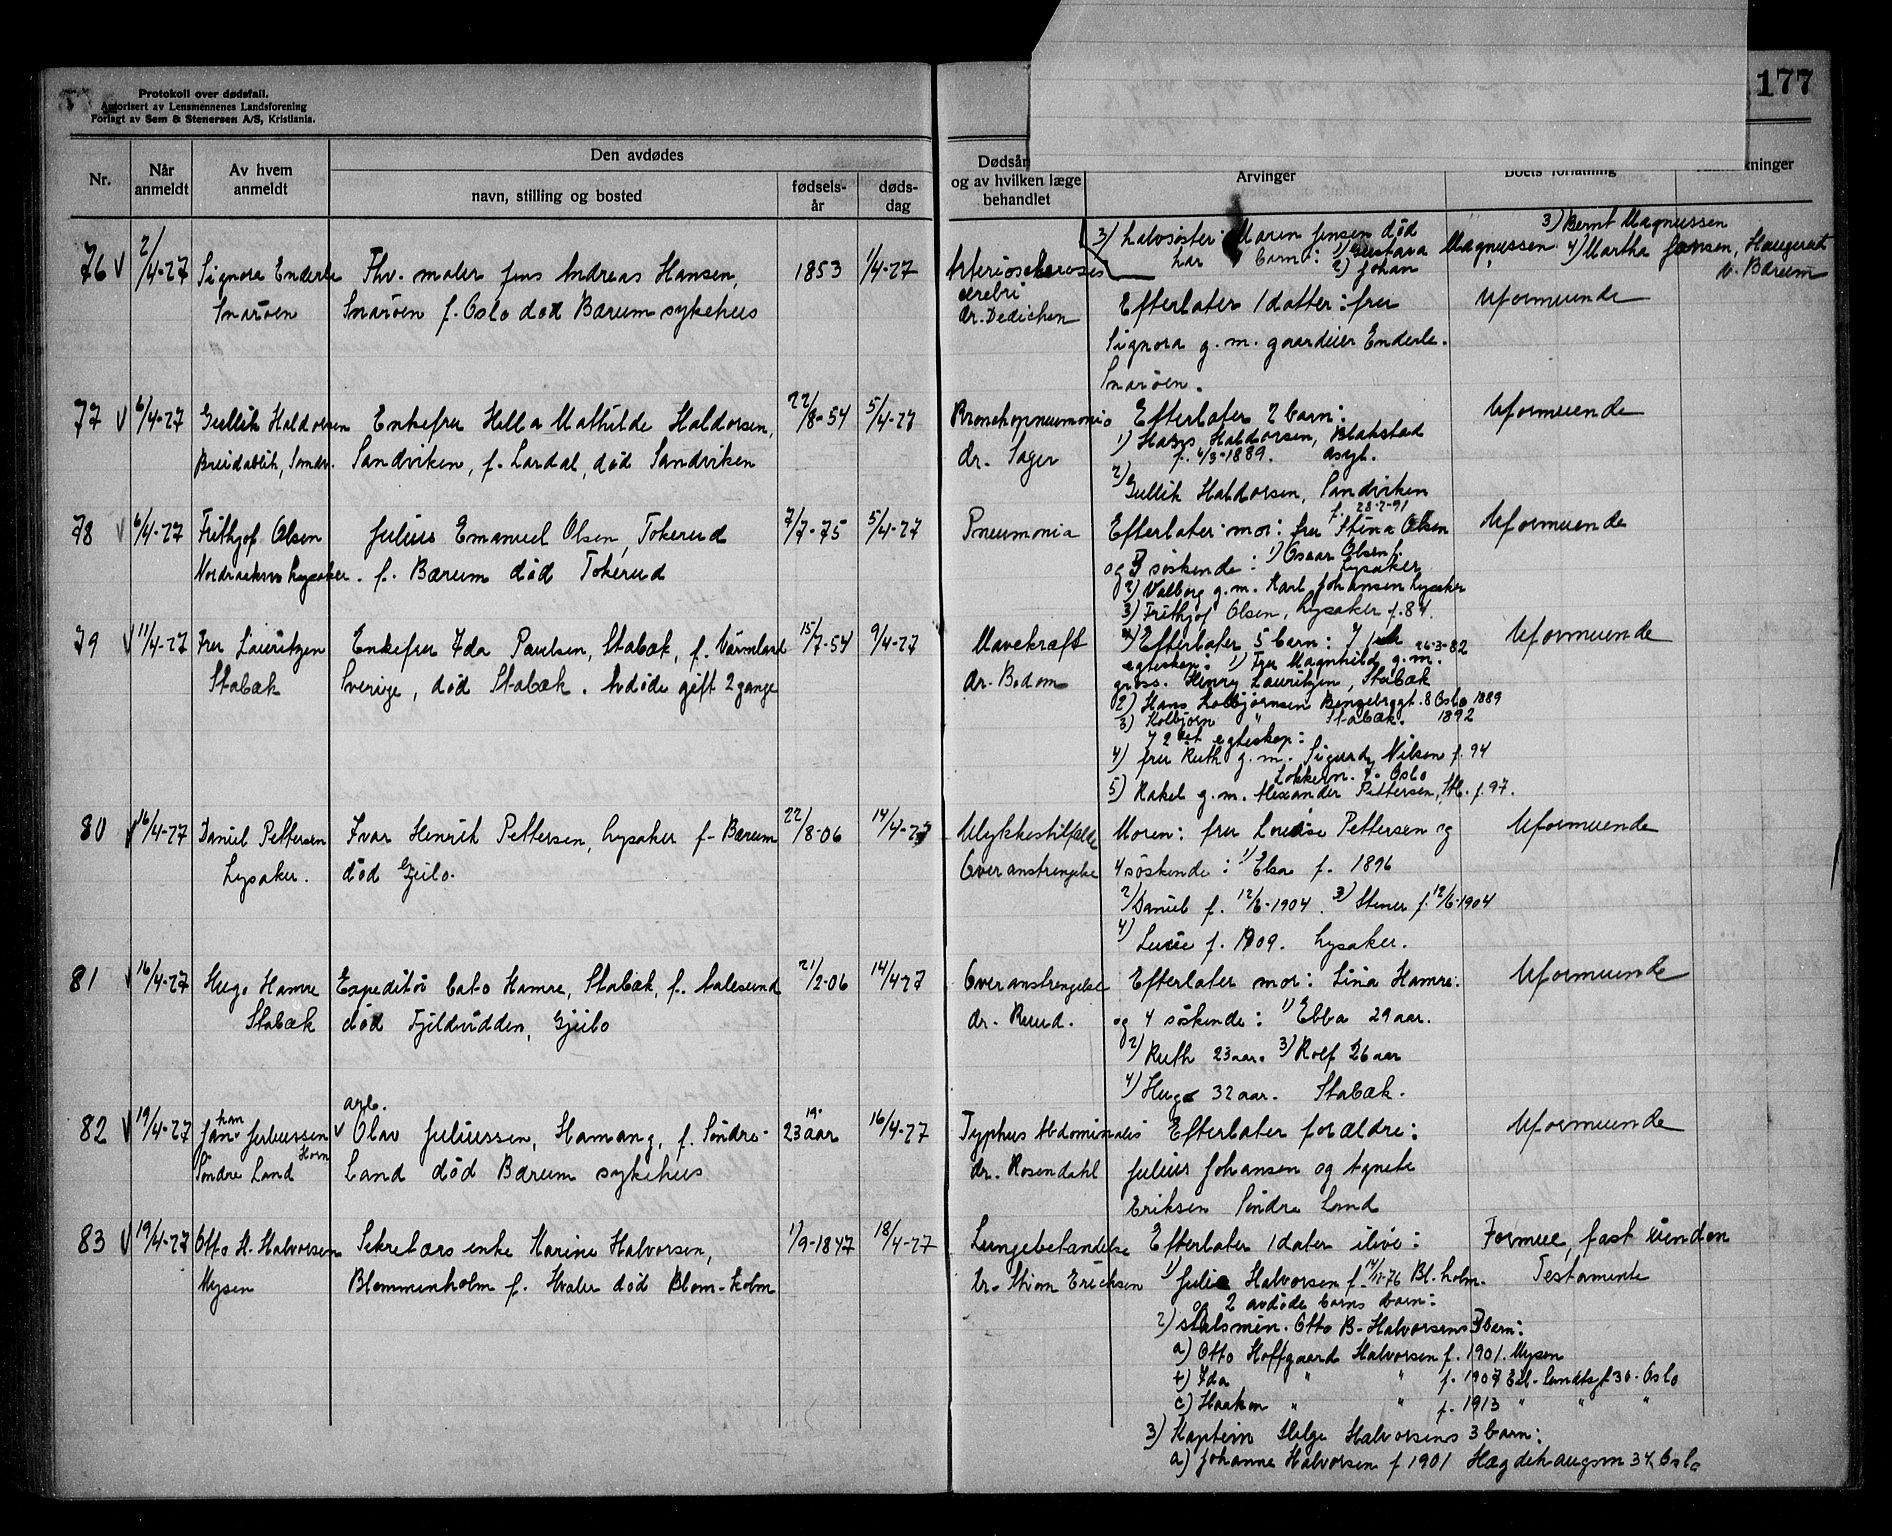 Protokoll over dødsfall.
Autorisert av Lensmennenes Landsforening
Forlagt av Sem & Stenersen A/S, Kristiania.
177
Nr.
Når anmeldt
Av hvem anmeldt
Den avdødes
navn, stilling og bosted
fødsels-år
døds-dag
Dødsår
og av hvilken læge
behandlet
Arvinger
Boets forfatning
kninger
3) halvsøster Maren Jensen død
har barn: 1) Gustava Magnussen
2) Johan "
3) Bernt Magnussen
4) Martha Jansen, Haugerud
v. Bærum
76 2/4-27 Signora Enderle Fhv. maler Jens Andreas Hansen, 1853 1/4-27 Arteriosclerosis
Snarøen Snarøen f. Oslo død Bærum sykehus
cerebri
dr. Dedichen
Efterlater 1 datter: fru
Signora g.m. gaardeier Enderle.
Snarøen.
Uformuende
77 6/4-27 Gullik Haldorsen Enkefru Hella Mathilde Haldorsen, 22/8-54 5/4-27 Bronchopneumonia
Breidablik, Sandv. Sandviken, f. Lardal, død Sandviken
dr. Sager
Efterlater 2 barn:
1) Hans Haldorsen, Blakstad
f. 4/3-1889. asyl.
2) Gullik Haldorsen, Sandviken
f. 28-2-91
Uformuende
78 6/4-27 Frithjof Olsen Julius Emanuel Olsen, Tokerud 7/7-75 5/4-27 Pneumonia
Lysaker. f. Bærum død Tokerud
Efterlater mor: fru Stina Olsen
og 3 søskende: 1) Oscar Olsen f.
Lysaker
2) Valborg g.m. Karl Johansen Lysaker
3) Frithjof Olsen, Lysaker f. 84.
Uformuende
79 11/4-27 Fru Lauritzen Enkefru Ida Paulsen, Stabæk, f. Värmland 15/7-54 9/4-27 Mavekræft
Stabæk Sverige, død Stabæk. Avdøde gift 2 gange
dr. Bødom
Efterlater 5 barn: I 1ste 26-3-82
egteskap: 1) Fru Magnhild g.m.
gross. Henry Lauritzen, Stabæk
2) Hans Kolbjørnsen 8 Oslo 1889
3) Kolbjørn " Stabæk. 1892
I 2det egteskap:
4) fru Ruth g.m. Sigurd Nilsen f. 94
Oslo
5) Rakel g.m. Alexander Pettersen, Stb. f. 97.
Uformuende
80 16/4-27 Daniel Pettersen Ivar Henrik Pettersen, Lysaker f. Bærum 22/8-06 14/4-27 Ulykkestilfælde
Lysaker. død Geilo.
Overanstrengelse
Moren: fru Louise Pettersen og
4 søskende: 1) Elsa f. 1896
2) Daniel f. 12/6-1904. 3) Stener f. 12/6-1904
4) Lucie f. 1909. Lysaker.
Uformuende
81 16/4-27 Hugo Hamre Expeditør Cato Hamre, Stabæk, f. Aalesund 21/2-06 14/4-27 Overanstrengelse
Stabæk død Fjeldvidden, Gjeilo
dr. Ruud.
Efterlater mor: Lina Hamre.
og 4 søskende: 1) Ebba 29 aar.
2) Ruth 23 aar. 3) Rolf 26 aar
4) Hugo 32 aar. Stabæk.
Uformuende
arb.
82 19/4-27 Johan Juliussen Olav Juliussen, Hamang, f. Søndre- 23 aar 16/4-27 Typhus Abdominalis
Horn
Søndre Land Land død Bærum sykehus
dr. Rosendahl
Efterlater forældre:
Julius Johansen og Agnete
Eriksen Søndre Land
Uformuende
83 19/4-27 Otto H. Halvorsen Sekretærs enke Karine Halvorsen, 1/9-1847 18/4-27 Lungebetændelse
Mysen Blommenholm f. Hvaler død Blom-holm
dr. Thiom Ericksen
Efterlater 1 dater ilive:
1) Julie Halvorsen f. 14/11-76 Bl. holm.
og 2 avdøde barns barn:
2) statsmin. Otto B. Halvorsens 3 barn:
a) Otto Hoffgaard Halvorsen f. 1901. Mysen
b) Ida " " f. 1907 Eil. Sundtsgt 30. Oslo
c) Haakon " " f. 1913 " " "
3) Kaptein Helge Halvorsens 3 barn:
a) Johanne Halvorsen f 1901 Hægdehaugsvn 34, Oslo
Formue, fast eiendom
Testamente